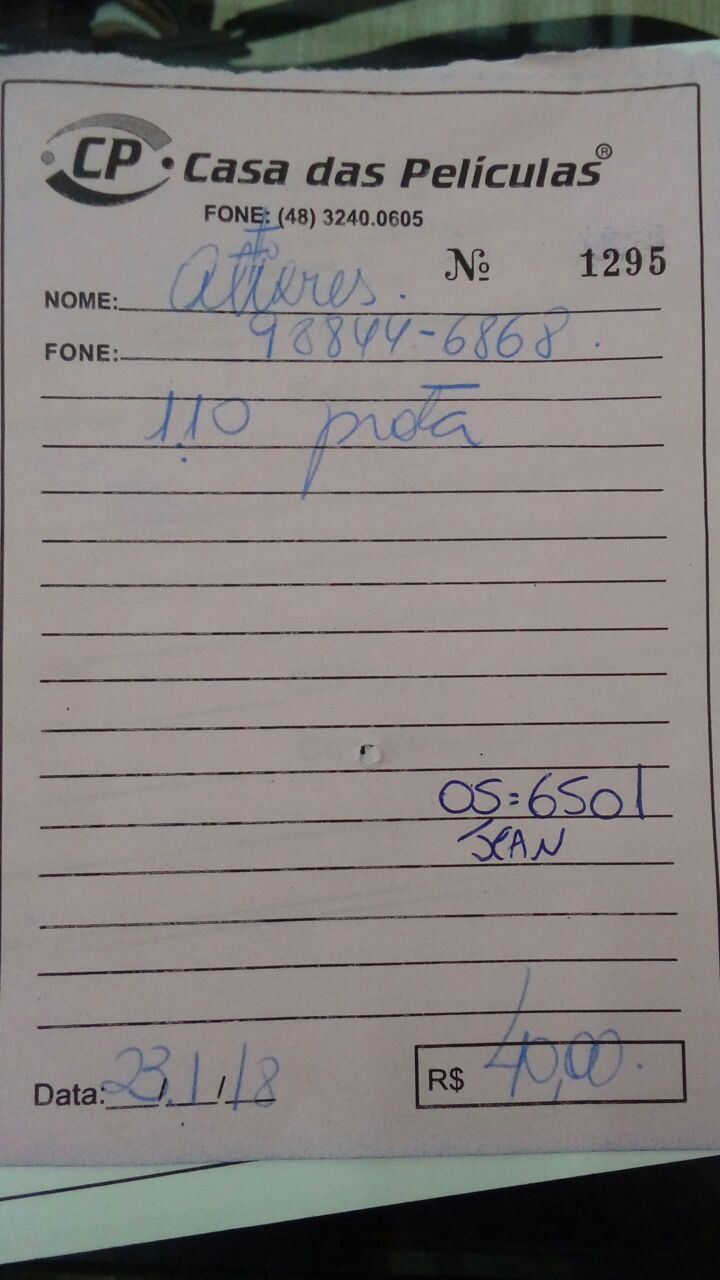 CP Casa das Películas®
FONE: (48) 3240.0605
Nº 1295
NOME:
FONE: 98844-6868.
1.10 prota
OS=6501
JEAN
Data: 23/1/18 R$ 40,00.